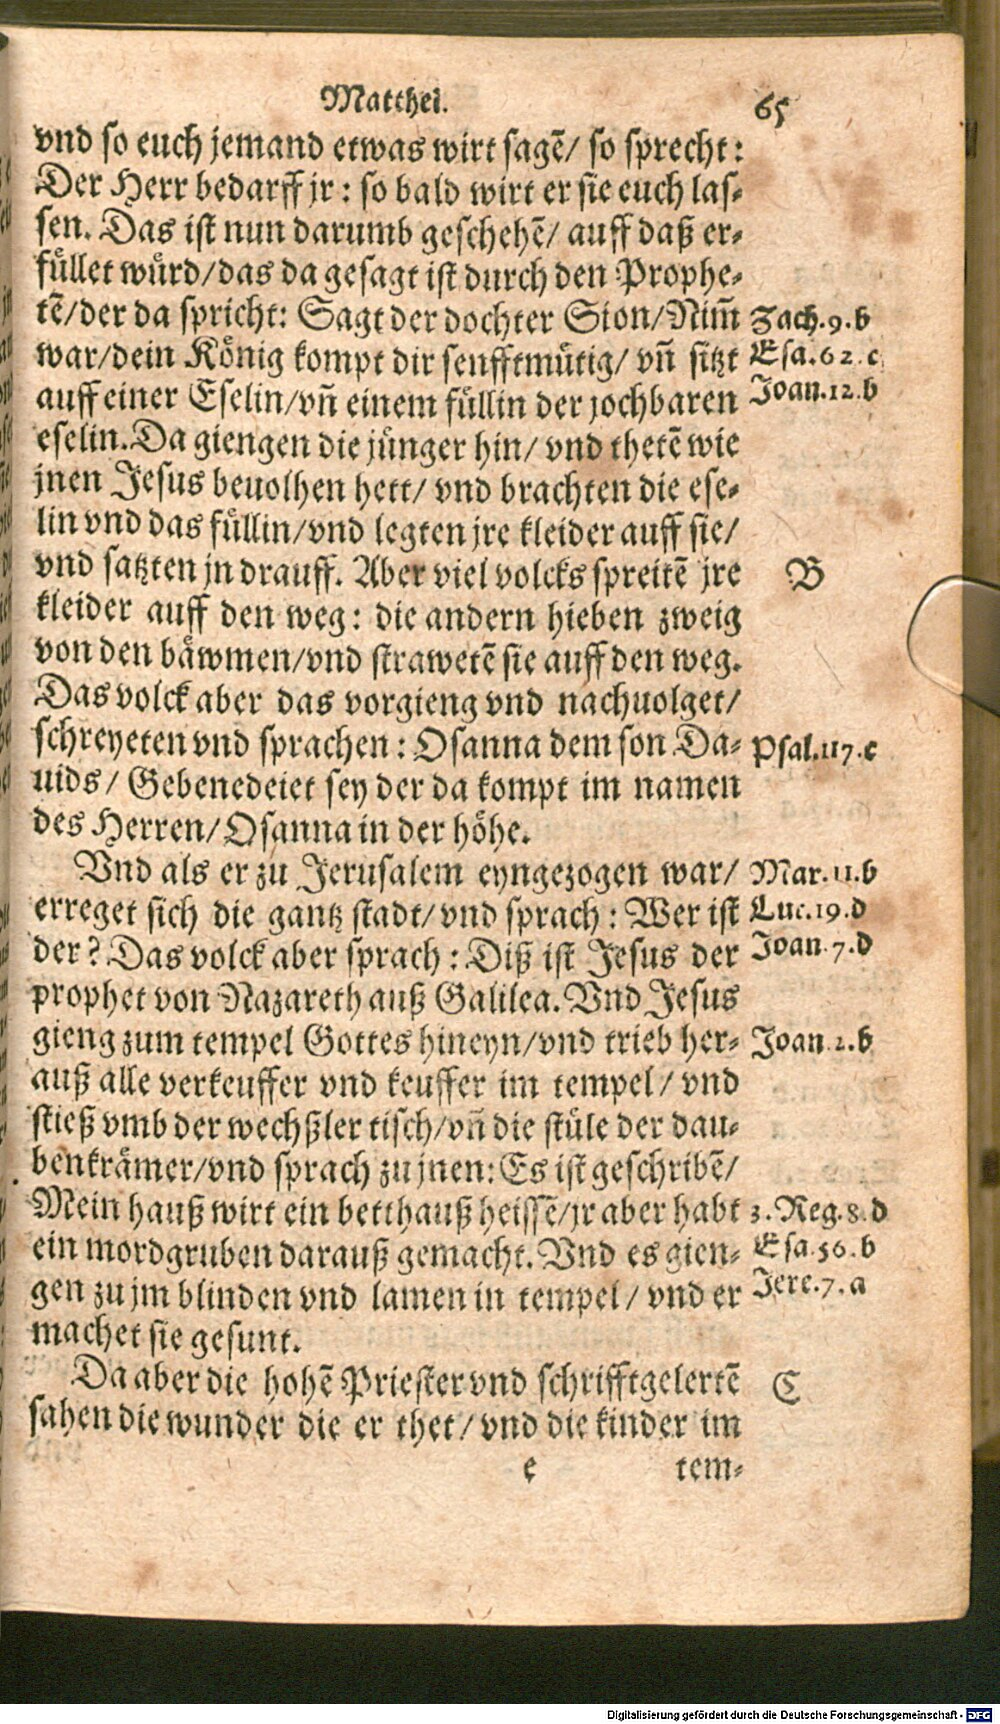 Matthei. 65
vnd so euch jemand etwas wirt sagẽ/ so sprecht:
Der Herr bedarff jr: so bald wirt er sie euch las-
sen. Das ist nun darumb geschehẽ/ auff daß er-
füllet würd/das da gesagt ist durch den Prophe-
tẽ/der da spricht: Sagt der dochter Sion/Nim̃ Zach.9.b
war/dein König kompt dir senfftmütig/ vñ sitzt Esa.62.c
auff einer Eselin/vñ einem füllin der jochbaren Joan.12.b
eselin. Da giengen die jünger hin/ vnd thetẽ wie
jnen Jesus beuolhen hett/ vnd brachten die ese-
lin vnd das füllin/vnd legten jre kleider auff sie/
vnd satzten jn drauff. Aber viel volcks spreitẽ jre B
kleider auff den weg: die andern hieben zweig
von den bäwmen/vnd strawetẽ sie auff den weg.
Das volck aber das vorgieng vnd nachuolget/
schreyeten vnd sprachen: Osanna dem son Da- Psal.117.c
uids/ Gebenedeiet sey der da kompt im namen
des Herren/Osanna in der höhe.
Vnd als er zu Jerusalem eyngezogen war/ Mar.11.b
erreget sich die gantz stadt/vnd sprach: Wer ist Luc.19.d
der? Das volck aber sprach: Diß ist Jesus der Joan.7.d
prophet von Nazareth auß Galilea. Vnd Jesus
gieng zum tempel Gottes hineyn/vnd trieb her- Joan.2.b
auß alle verkeuffer vnd keuffer im tempel/ vnd
stieß vmb der wechßler tisch/vñ die stüle der dau-
benkrämer/vnd sprach zu jnen: Es ist geschribẽ/
Mein hauß wirt ein betthauß heissẽ/jr aber habt 3.Reg.8.d
ein mordgruben darauß gemacht. Vnd es gien- Esa.56.b
gen zu jm blinden vnd lamen in tempel/ vnd er Jere.7.a
machet sie gesunt.
Da aber die hohẽ Priester vnd schrifftgelertẽ C
sahen die wunder die er thet/ vnd die kinder im
e tem-
Digitalisierung gefördert durch die Deutsche Forschungsgemeinschaft - DFG